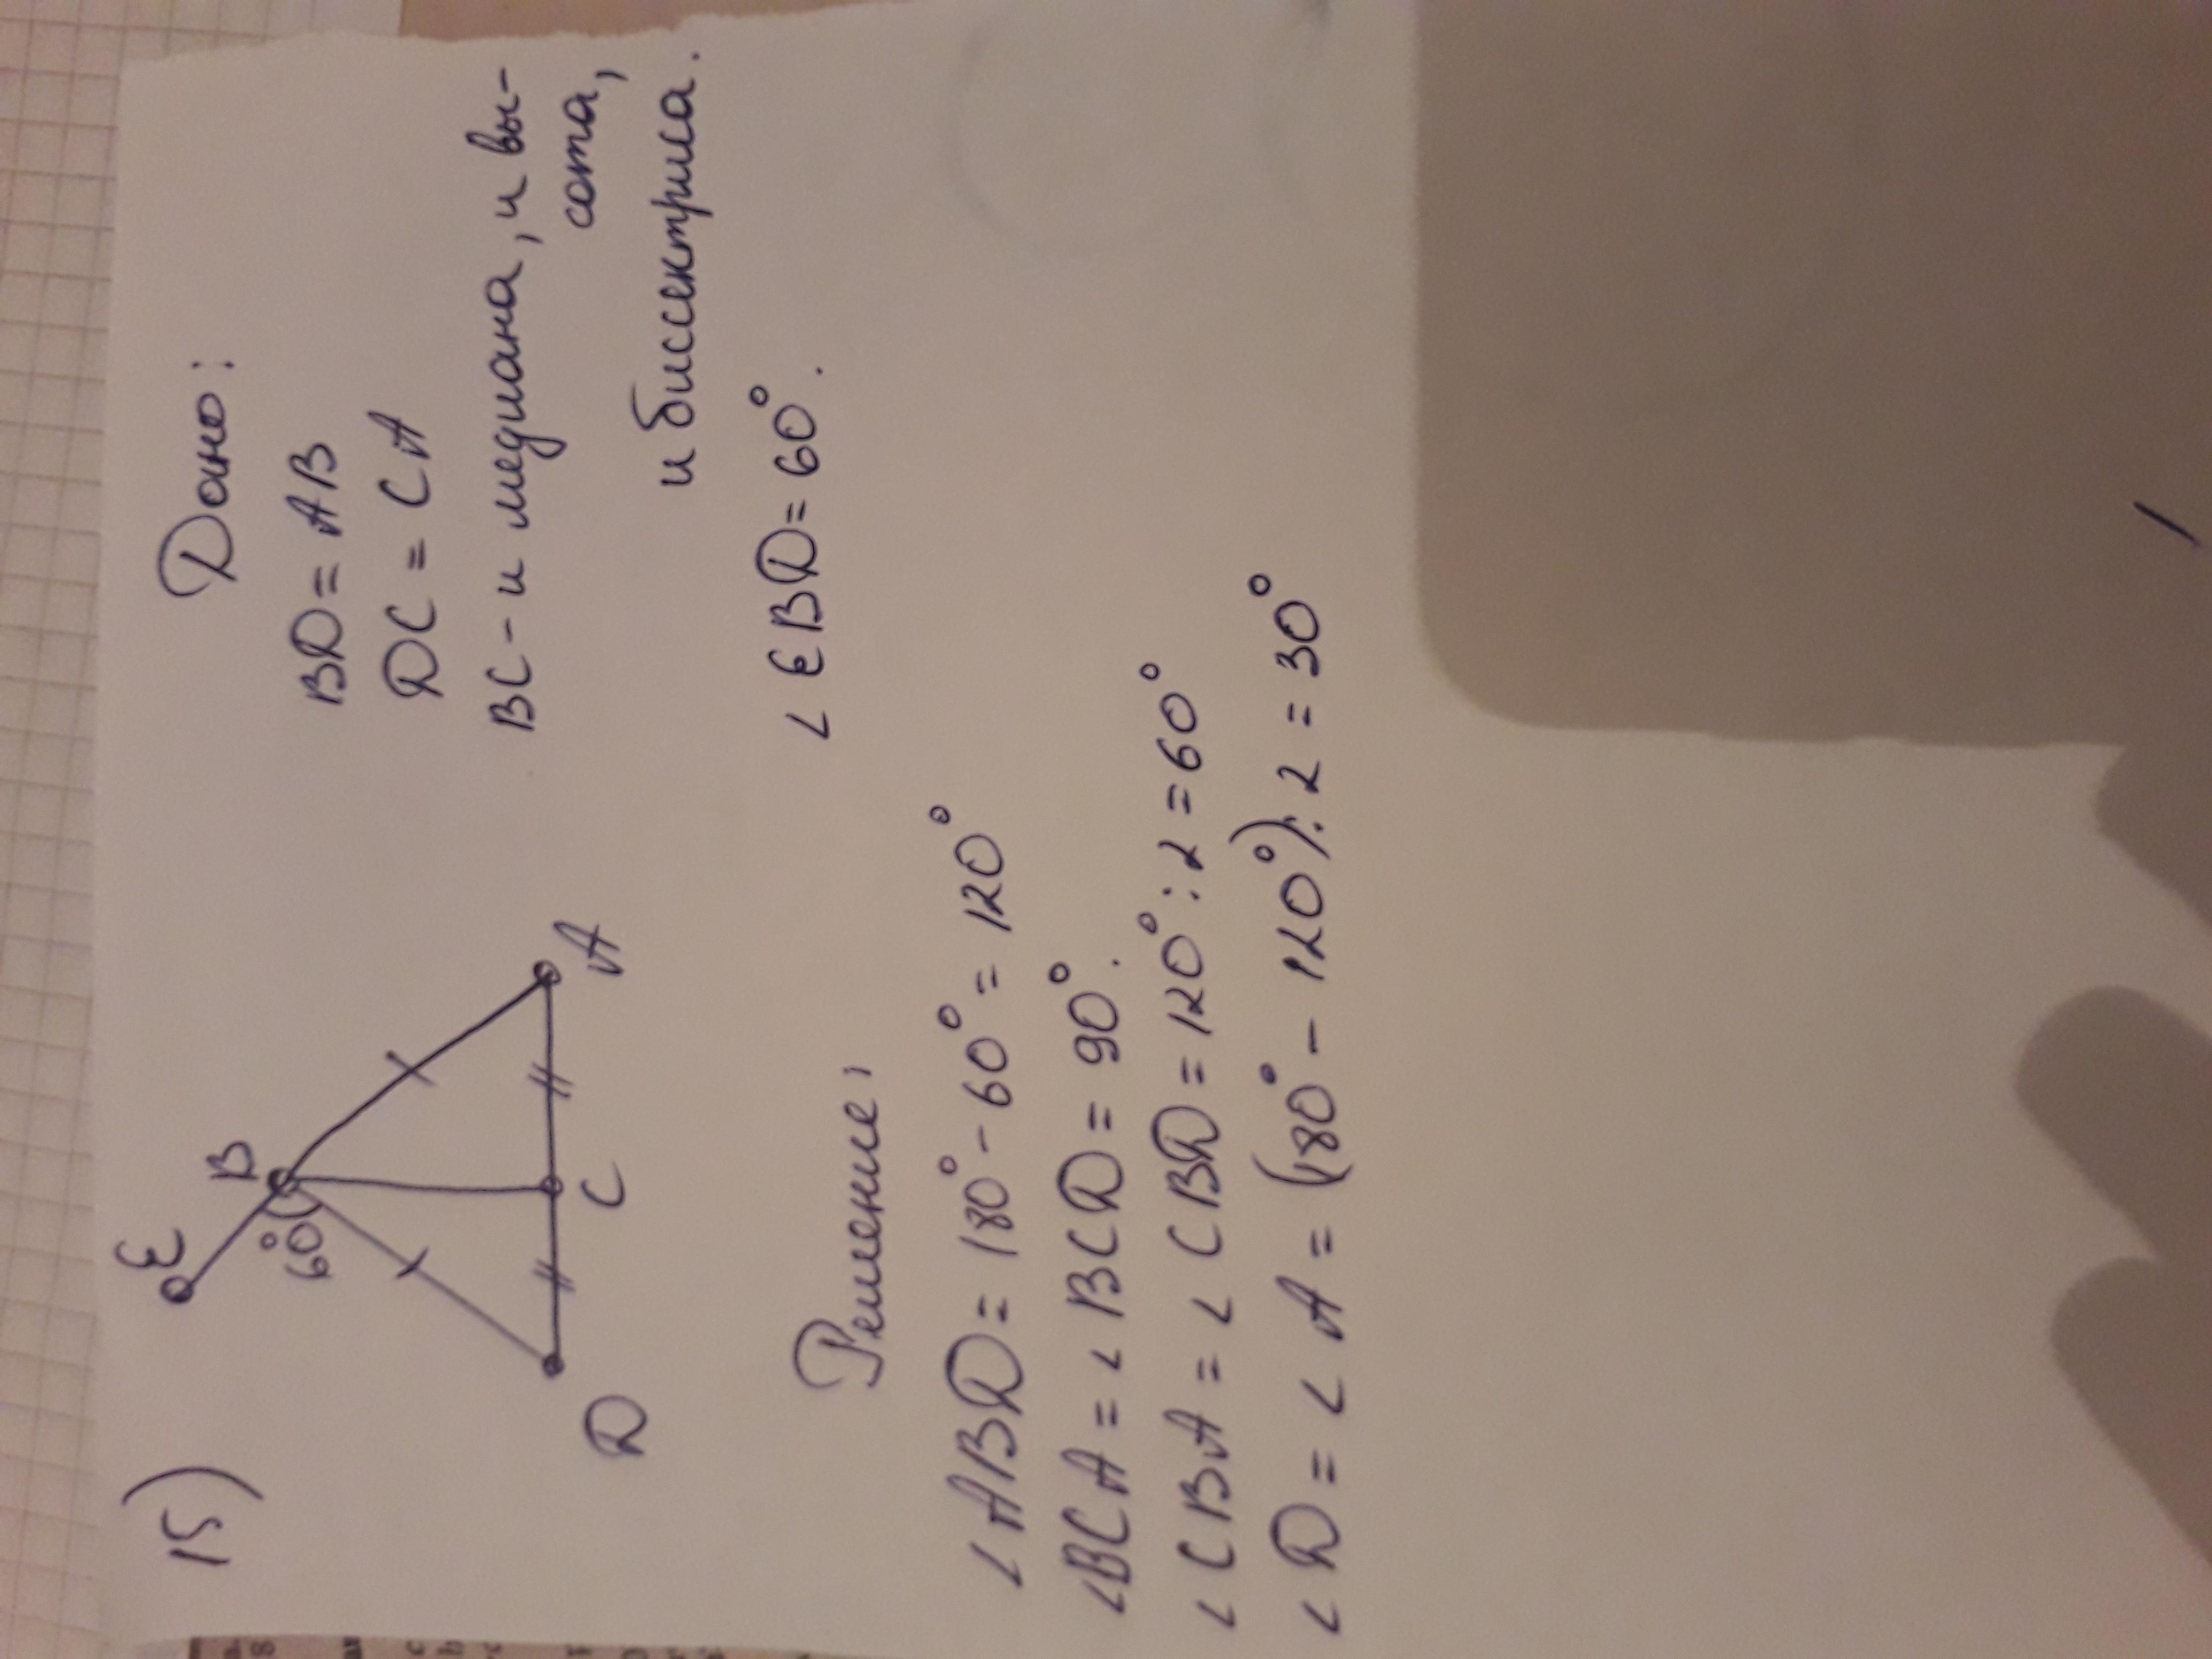 15)
E
B
60°
D
C
A
Дано:
BD = AB
DC = CA
BC - и медиана, и вы-
сота,
и биссектриса.
∠ EBD = 60°.
Решение,
∠ABD = 180° - 60° = 120°
∠BCA = ∠BCD = 90°.
∠CBA = ∠CBD = 120° : 2 = 60°
∠D = ∠A = (180° - 120°) : 2 = 30°